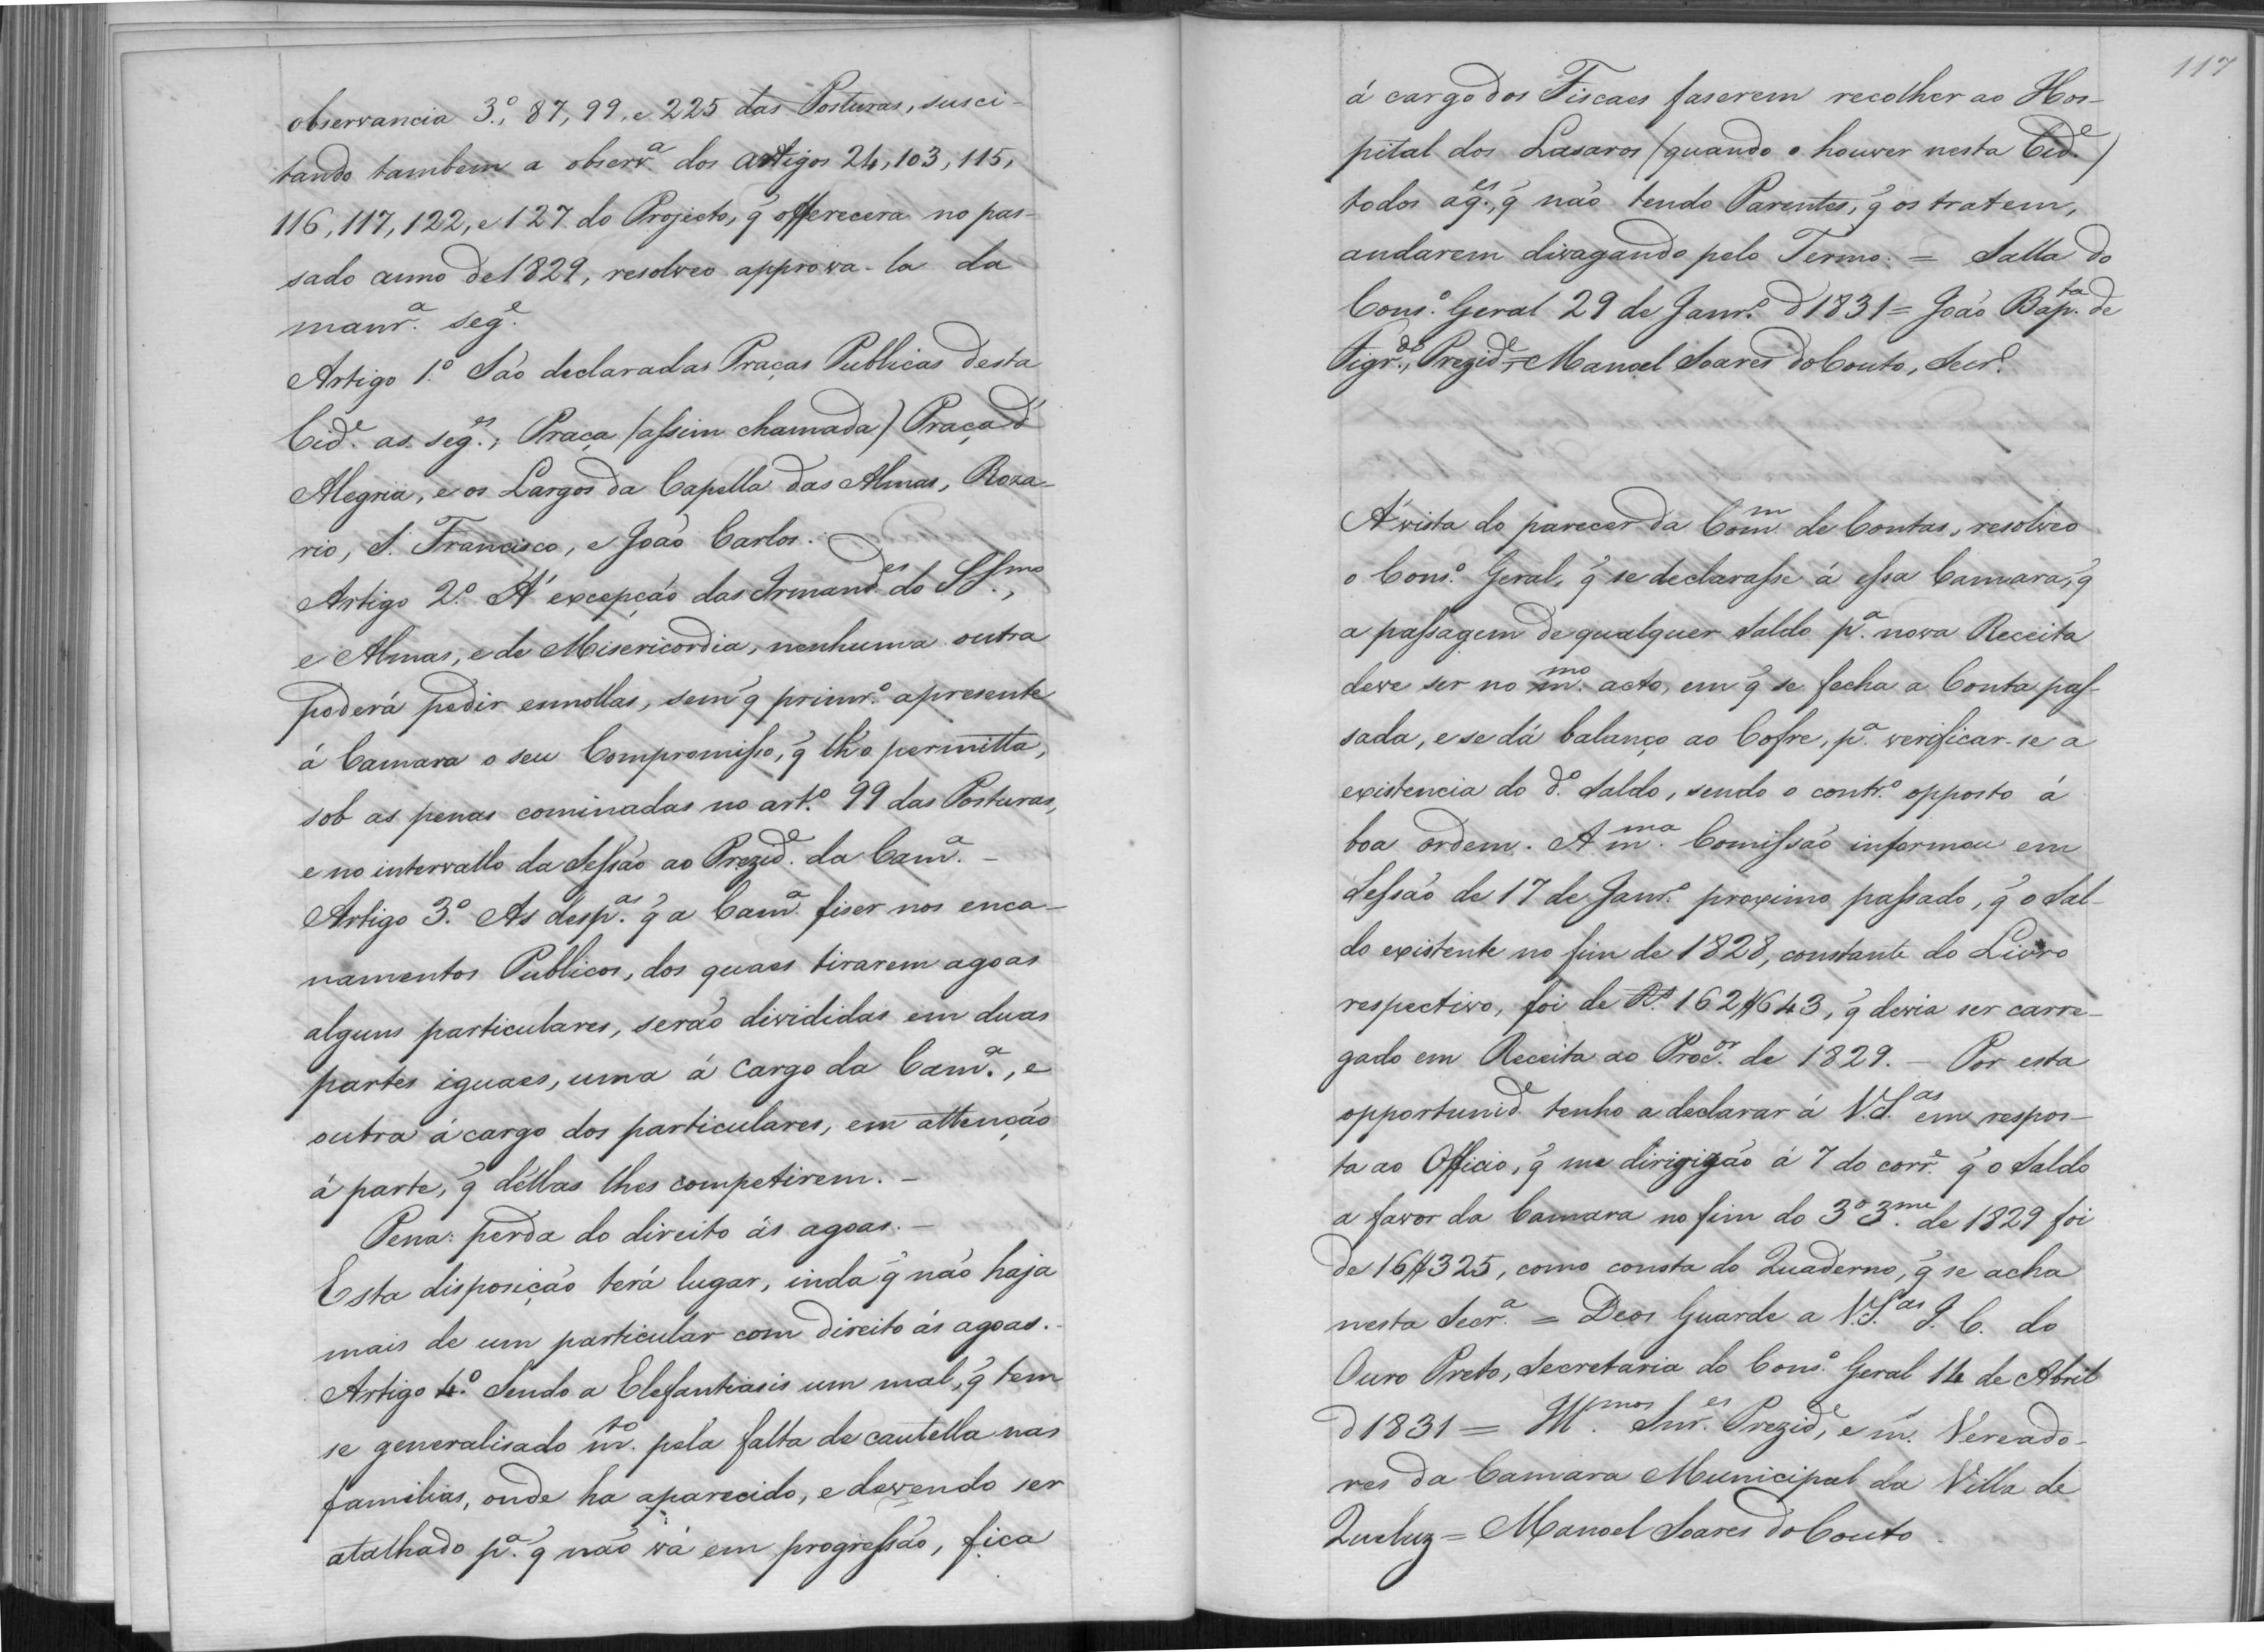 observancia 3.º, 87, 99, e 225 das Posturas, susci-
tando tambem a observ.ª dos artigos 24, 103, 115,
116, 117, 122, e 127 do Projecto, q̃ offerecera no pas-
sado anno de 1829, resolveo approva-la da
manr.ª seg.e
Artigo 1.º São declaradas Praças Publicas desta
Cid.e as seg.es; Praça (assim chamada) Praça d'
Alegria, e os Largos da Capella das Almas, Roza-
rio, S. Francisco, e João Carlos.
Artigo 2.º Á excepção das Irmand.es do SSmo.,
e Almas, e de Misericordia, nenhuma outra
poderá pedir esmollas, sem q̃ primr.º apresente
á Camara o seu Compromisso, q̃ lh'o permitta,
sob as penas cominadas no art.º 99 das Posturas,
e no intervallo da Sessão ao Prezid.e da Cam.ª -
Artigo 3.º As desp.as q̃ a Cam.ª fiser nos enca-
namentos Publicos, dos quaes tirarem agoas
alguns particulares, serão divididas em duas
partes iguaes, uma á cargo da Cam.ª, e
outra á cargo dos particulares, em attenção
á parte, q̃ déllas lhes competirem. -
Pena: perda do direito ás agoas. -
Esta disposição terá lugar, inda q̃ não haja
mais de um particular com direito ás agoas. -
Artigo 4.º Sendo a Elefantiasis um mal, q̃ tem
se generalisado m.to pela falta de cautella nas
familias, onde ha aparecido, e devendo ser
atalhado p.ª q̃ não vá em progressão, fica
117
á cargo dos Fiscaes faserem recolher ao Hos-
pital dos Lasaros (quando o houver nesta Cid.e)
todos aq.es, q̃ não tendo Parentes, q̃ os tratem,
andarem divagando pelo Termo. = Salla do
Cons.º Geral 29 de Janr.º d 1831 = João Bap.ta de
Figr.do, Prezid.e = Manoel Soares do Couto, Secr.º
Á vista do parecer da Com.m de Contas, resolveo
o Cons.º Geral, q̃ se declarasse á essa Camara, q̃
a passagem de qualquer Saldo p.ª nova Receita
deve ser no m.mo acto, em q̃ se fecha a Conta pas-
sada, e se dá balanço ao Cofre, p.ª verificar-se a
existencia do d.º Saldo, sendo o contr.º opposto á
boa ordem. A m.ma Comissão informou em
Sessão de 17 de Janr.º proximo passado, q̃ o Sal-
do existente no fim de 1828, constante do Livro
respectivo, foi de R.s 162$643, q̃ devia ser carre-
gado em Receita ao Proc.or de 1829. - Por esta
opportunid.e tenho a declarar á V.S.as em respos-
ta ao Officio, q̃ me dirigigão á 7 do corr.e q̃ o Saldo
a favor da Camara no fim do 3.º 3.me de 1829 foi
de 16$325, como consta do Quaderno, q̃ se acha
nesta Secr.ª = Deos Guarde a V.S.as I. C. do
Ouro Preto, Secretaria do Cons.º Geral 14 de Abril
d 1831 = Ill.mos Snr.es Prezid.e, e m. Vereado-
res da Camara Municipal da Villa de
Queluz = Manoel Soares do Couto